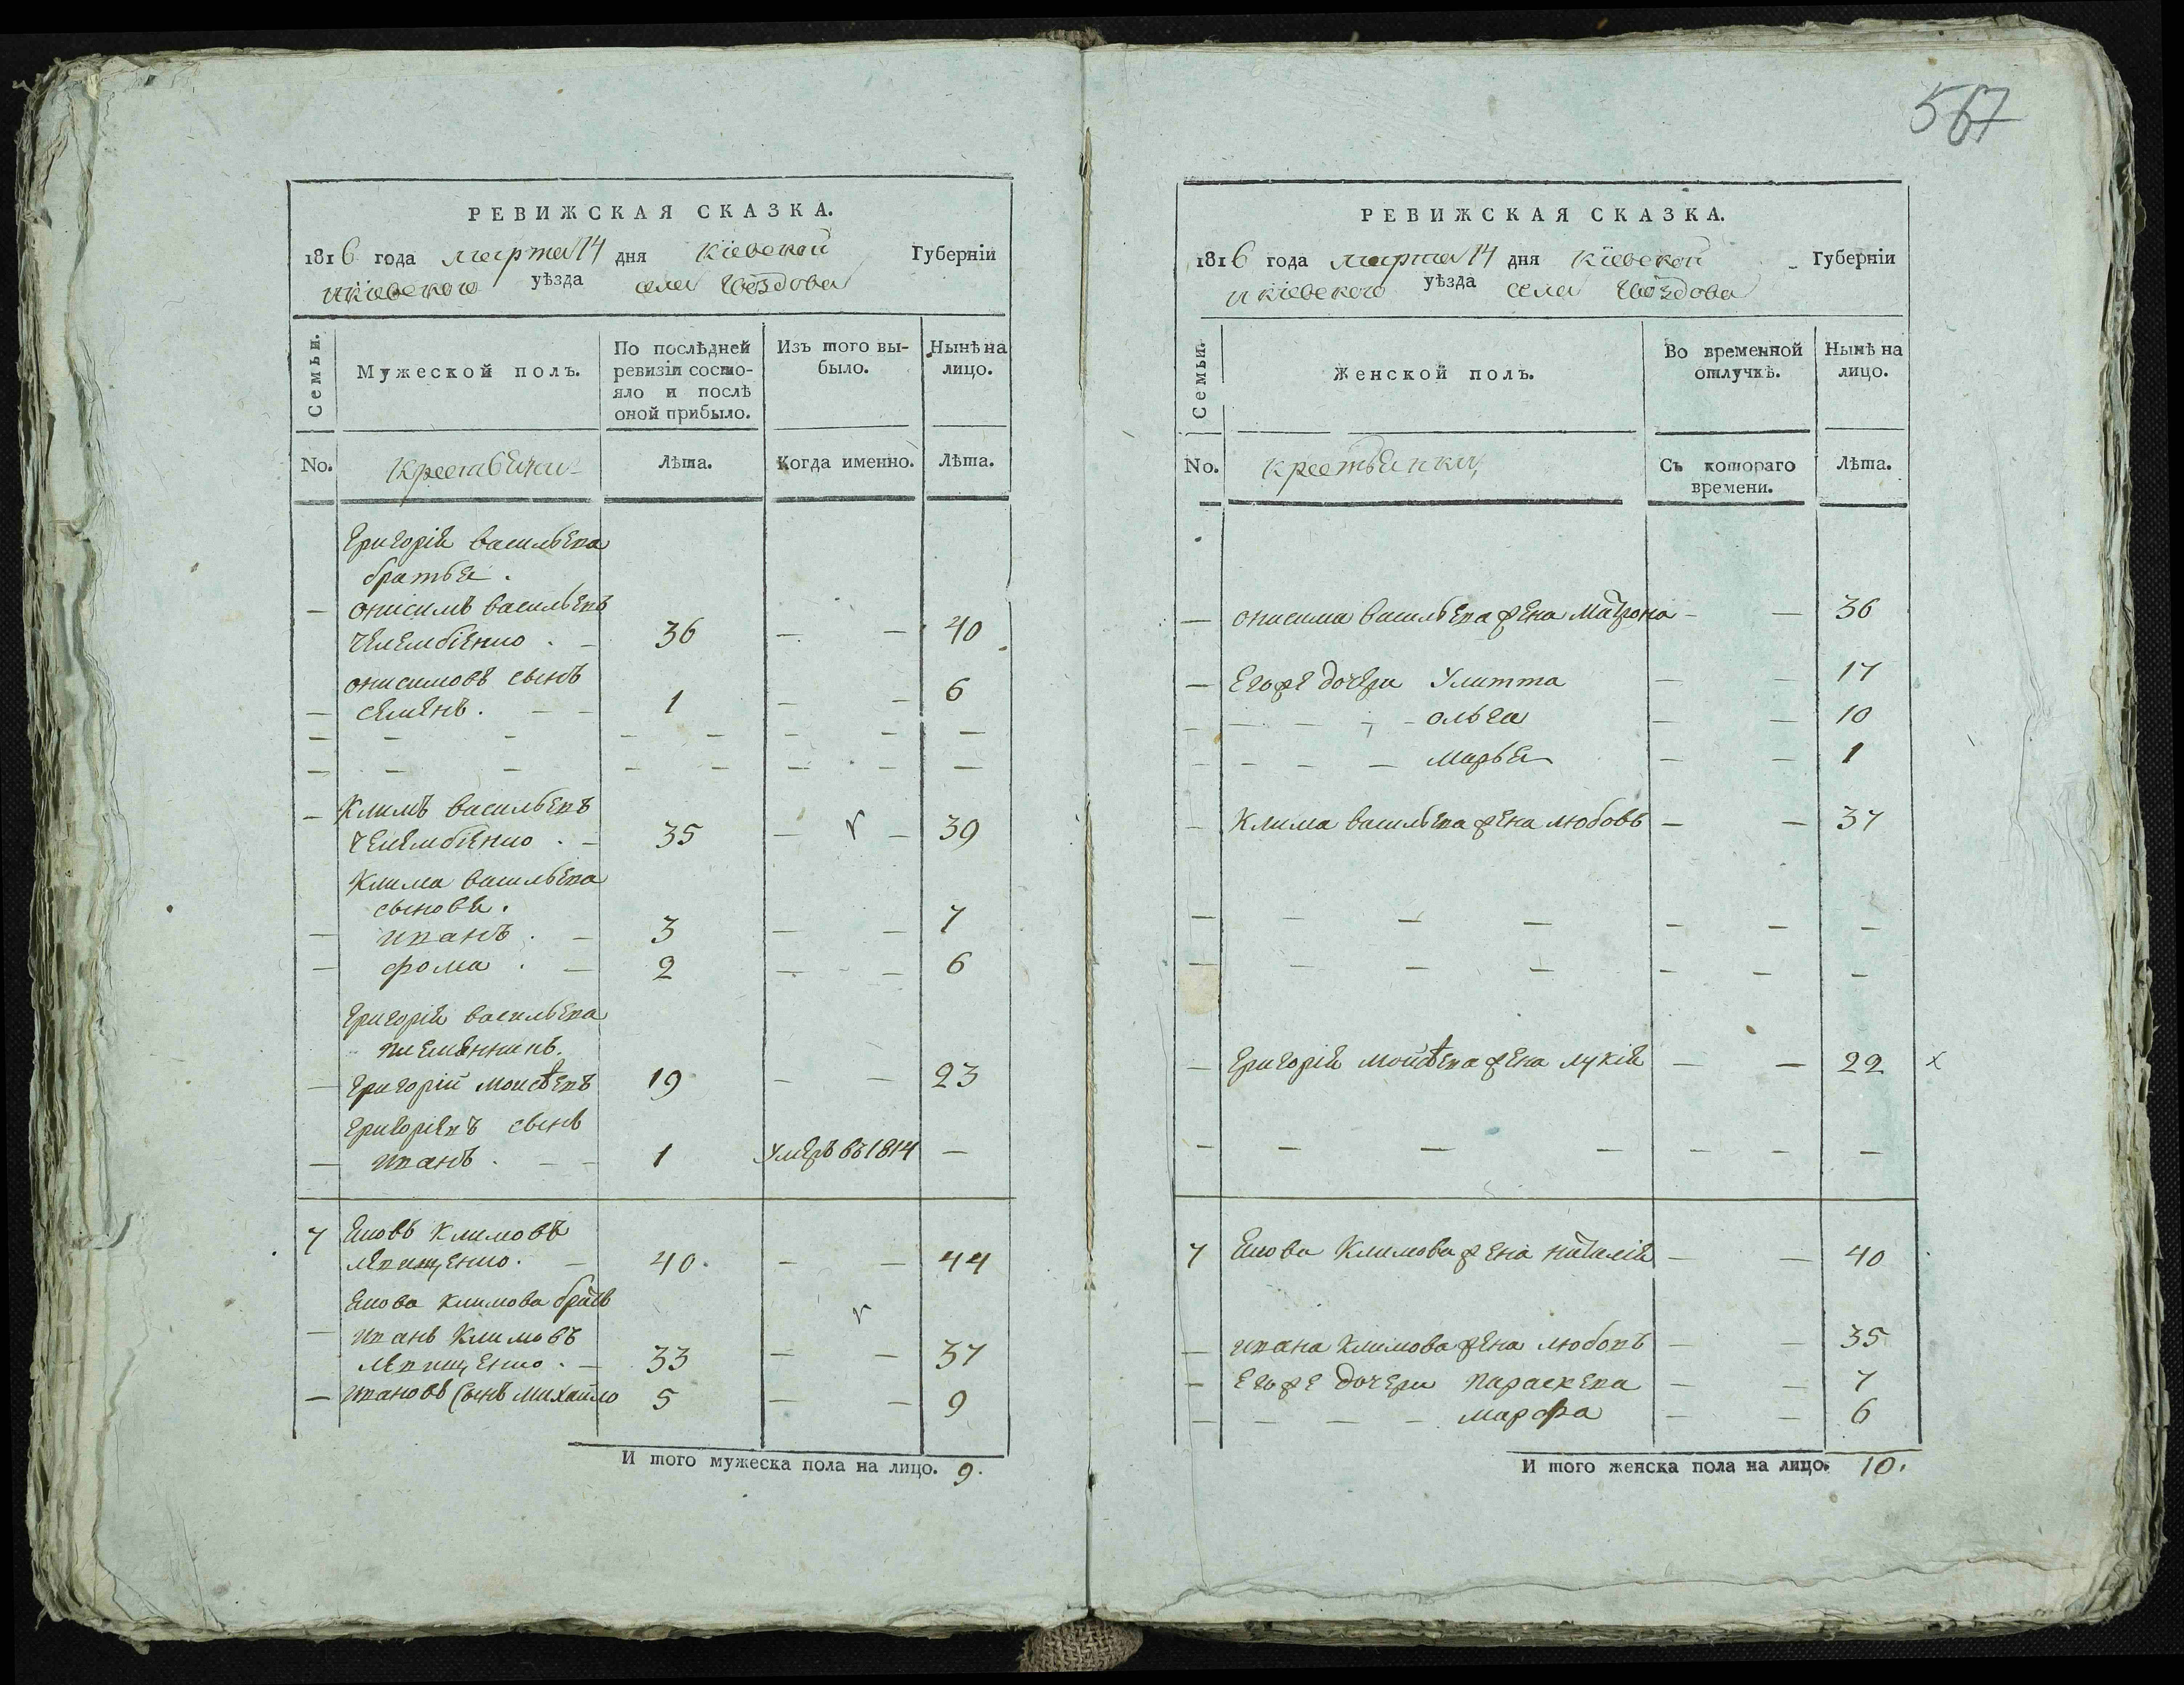 567
РЕВИЖСКАЯ СКАЗКА.
1816 года марта 14 дня Кіевской Губерніи
и кіевского уѣзда села Гвоздова
Семьи.
Мужеской полъ.
По послѣдней ревизіи состо-
яло и послѣ
оной прибыло.
Изъ того вы-
было.
Нынѣ на
лицо.
No. крестьяне Лѣта. Когда именно. Лѣта.
Григорія васильева
братья.
— онисимъ васильевъ
— 36 — — 40
онисимовъ сынъ
— семенъ. — — 1 — — 6
— — — — — — — —
— — — — — — — —
— Климъ васильевъ
— 35 — — 39
Клима васильева
сыновя.
— иванъ. — 3 — — 7
— фома. — 2 — — 6
Григорія васильева
племянникъ.
— григорій моисѣевъ 19 — — 23
григоріевъ сынъ
— иванъ. — — 1 умеръ въ 1814 —
7 Яковъ Климовъ
— 40. — — 44
Якова климова братъ
— иванъ Климовъ
— 33 — — 37
— ивановъ сынъ михайло 5 — — 9
И того мужеска пола на лицо. 9.
РЕВИЖСКАЯ СКАЗКА.
1816 года марта 14 дня Кіевской Губерніи
и кіевского уѣзда села Гвоздова
Семьи.
Женской полъ.
Во временной
отлучкѣ.
Нынѣ на
лицо.
No. крестьянки Съ котораго
времени. Лѣта.
— онисима васильева жена матрона — — 36
— Егоже дочери Улитта — — 17
— — — — ольга — — 10
— — — — марья — — 1
— Клима васильева жена любовь — — 37
— — — — — — —
— — — — — — —
— григорія моисѣева жена лукія — — 22 x
— — — — — — —
7 Якова Климова жена наталія — — 40
— ивана климова жена любовъ — — 35
— Егоже дочери параскева — — 7
— — — — марфа — — 6
И того женска пола на лицо. 10.